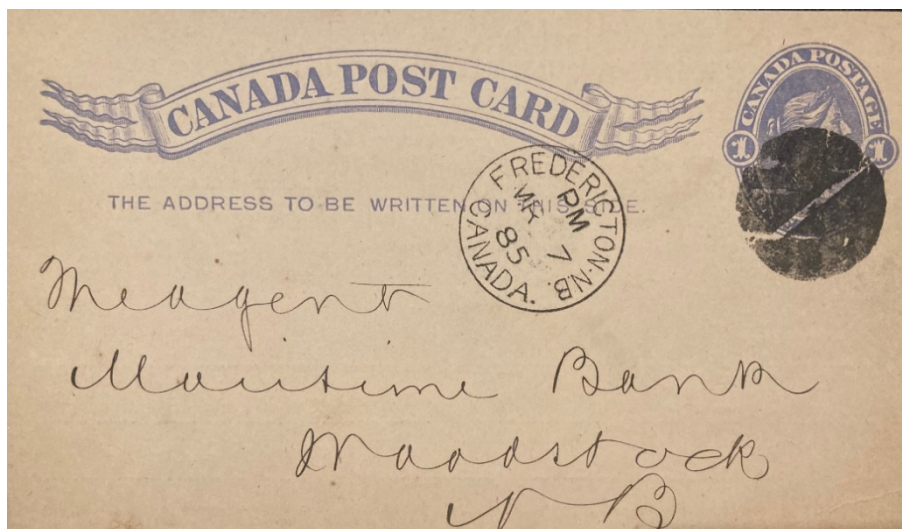 CANADA POST CARD
CANADA POSTAGE
1 1
THE ADDRESS TO BE WRITTEN ON THIS SIDE.
FREDERICTON·N.B.
PM
MR 7
85
CANADA.
The agent
Maritime Bank
Woodstock
N B